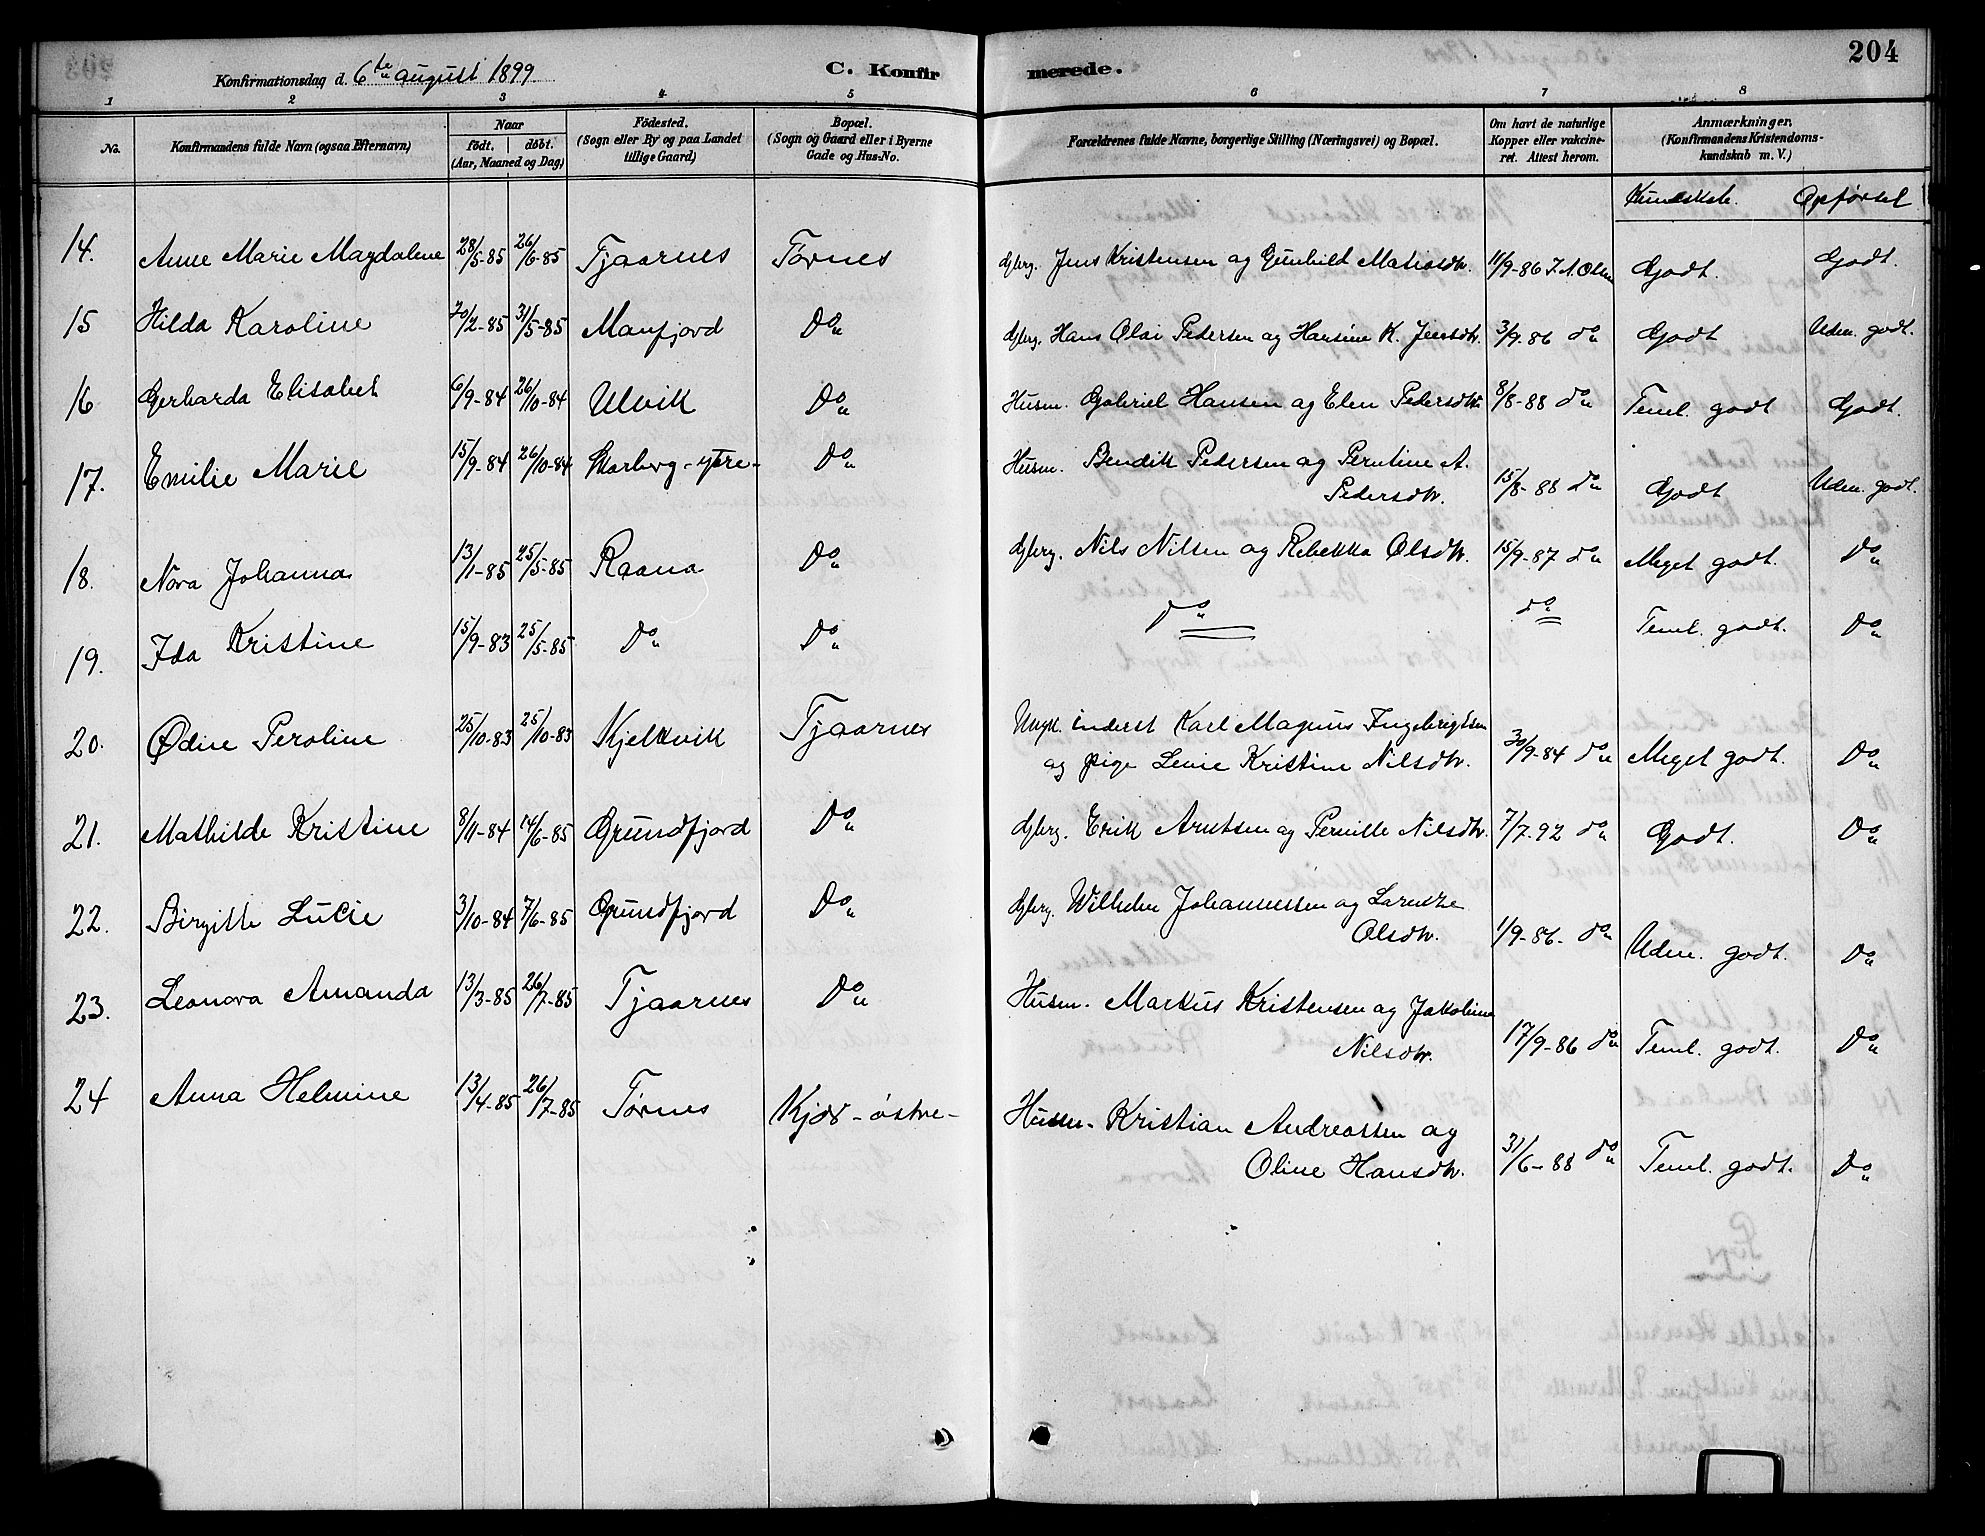 204
Konfirmationsdag d. 6te august 1899.
C. Konfirmerede.
1 2 3 4 5 6 7 8
No.
Konfirmandens fulde Navn (ogsaa Efternavn)
Naar
födt. döbt.
(Aar, Maaned og Dag)
Födested.
(Sogn eller By og paa Landet
tillige Gaard)
Bopæl.
(Sogn og Gaard eller i Byerne
Gade og Hus-No.
Forældrenes fulde Navne, borgerlige Stilling (Næringsvei) og Bopæl.
Om havt de naturlige
Kopper eller vakcine-
ret. Attest herom.
Anmærkninger.
(Konfirmandens Kristendoms-
kundskab m. V.)
Kundskab. Opförsel
14. Anne Marie Magdalene 28/5-85 26/6-85 Tjaarnes Tørnes Gjbrg. Jens Kristensen og Gunhild Matisdtr. 11/9-86 J. A. Olsen Godt. Godt.
15 Hilda Karoline 20/2-85 31/5-85 Manfjord Do Gjbrg. Hans Olai Pedersen og Hansine K. Jensdtr. 3/9-86 do Godt Uden. godt.
16 Gerharda Elisabet 6/9-84 26/10-84 Ulvik Do Husm. Gabriel Hansen og Elen Pedersdtr. 8/8-88 do Teml. godt Godt.
17. Emilie Marie 15/9-84 26/10-84 Skarberg-ytre- Do Husm. Bendik Pedersen og Perntine A.
Pedersdtr. 15/8-88 do Godt Uden. godt.
18. Nora Johanna 13/1-85 25/5-85 Raana Do Gjbrg. Nils Nilsen og Rebekka Olsdtr. 15/9-87 do Meget godt. Do
19. Ida Kristine 15/9-83 25/5-85 Do Do do do Teml. godt. Do
20. Ødine Peroline 25/10-83 25/10-83 Kjelkvik Tjaarnes Ungk. inderst Karl Magnus Ingebrigtsen
og pige Lene Kristine Nilsdtr. 30/9-84 do Meget godt. Do
21. Mathilde Kristine 8/11-84 14/6-85 Grundfjord Do Gjbrg. Erik Arntsen og Pernille Nilsdtr. 7/7-92 do Godt. Do
22. Birgitte Lucie 3/10-84 7/6-85 Grundfjord Do Gjbrg. Wilhelm Johannessen og Larntze
Olsdtr. 1/9-86- do Uden. godt. Do
23. Leonora Amanda 13/3-85 26/7-85 Tjaarnes Do Husm. Markus Kristensen og Jakobine
Nilsdtr. 17/9-86 do Teml. godt. Do
24 Anna Helmine 13/4-85 26/7-85 Tørnes Kjær-østre- Husm. Kristian Andreassen og
Oline Hansdtr. 31/6-88 do Teml. godt. Do